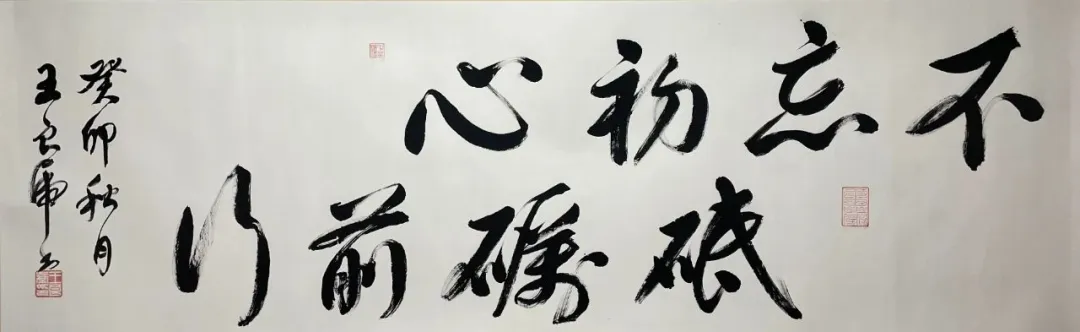 不忘初心
砥礪前行
癸卯秋月
王良虎书